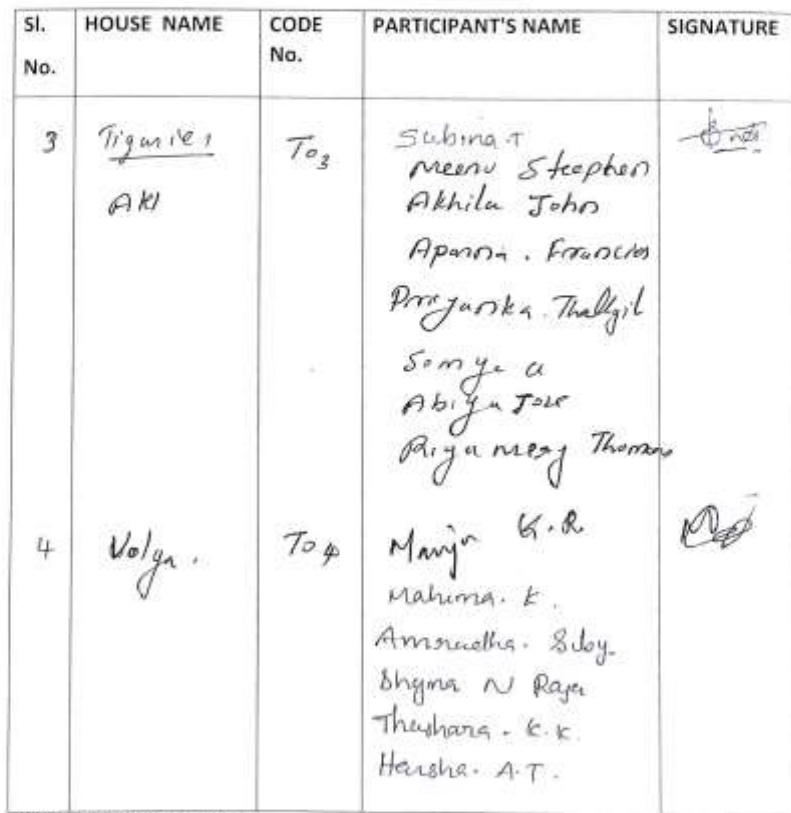 Sl. No.
HOUSE NAME
CODE No.
PARTICIPANT'S NAME
SIGNATURE
3
To3
Subina T
Meenu Steephen
Akhila John
Aparna . Francies
Priyanka .
Somya a
Abiya Jose
Riya mery Thomas
4
Volga .
To 4
Manju K.R
Mahima. K.
Anuradha. Siby.
Shyma N Raju
Thushara. K.K.
Harsha. A.T.